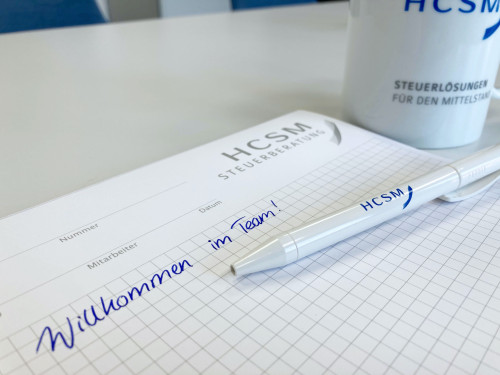 HCSM
STEUERLÖSUNGEN
FÜR DEN MITTELSTAND
HCSM
STEUERBERATUNG
Nummer
Datum
Mitarbeiter
HCSM
Willkommen im Team!